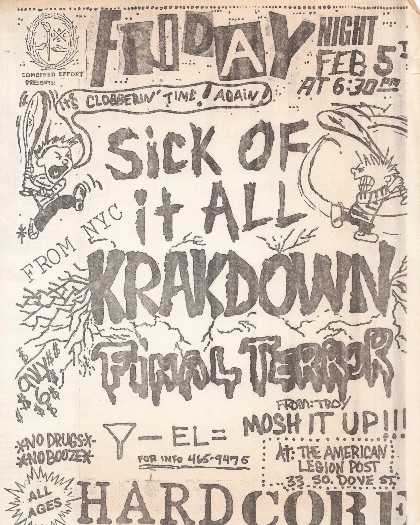 FRIDAY NIGHT
FEB 5TH
AT 6:30PM
COMBINED EFFORT
PRESENTS:
IT'S CLOBBERIN' TIME! AGAIN!
SICK OF
it ALL
FROM NYC
KRAKDOWN
FINAL TERROR
FROM: TROY
ONLY
$6
MOSH IT UP!!!
Y-EL=
FOR INFO 465-9475
*NO DRUGS*
*NO BOOZE*
At: THE AMERICAN
LEGION POST
33 SO. DOVE ST.
ALL
AGES
HARDCORE